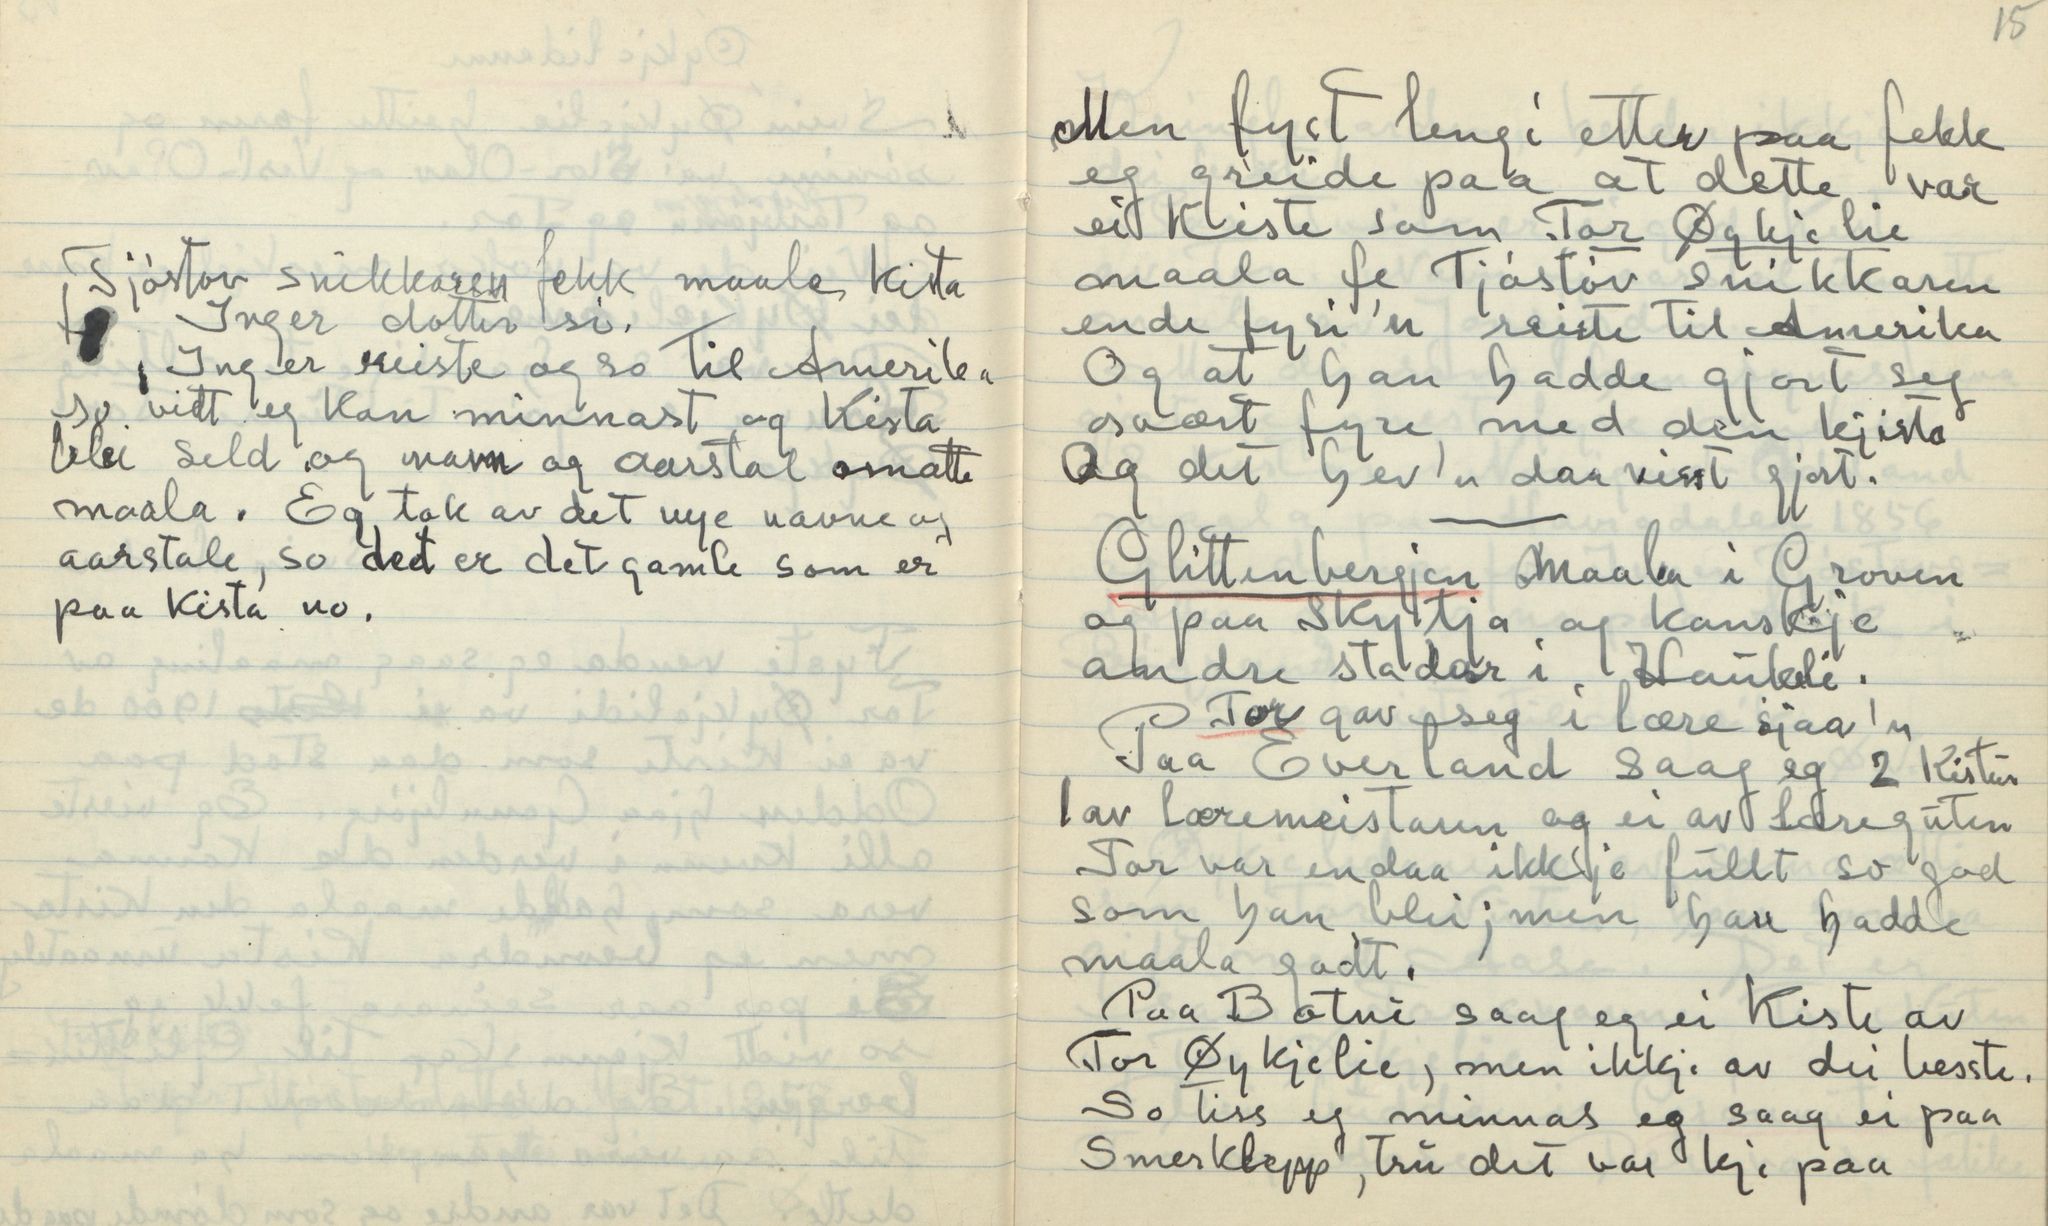 Tjóstov snikkaren fekk maale kista
Inger dotter si.
Inger reiste ogso til Amerika
so vidt eg kan minnast og kista
blei seld og navn og aarstal omatte
maala. Eg tok av det nye navne og
aarstale, so det er det gamle som er
paa kista no.
15
Men fyst lengi etter paa fekk
eg greide paa at dette var
ei Kiste som Tor Øykjelie
maala fe Tjóstóv Snikkaren
ende fyri'n reiste til Amerika
Og at han hadde gjort seg
osvært fyre med den kjista
Og det hev'n daa visst gjort.
Glittenbergjen Maala i Groven
og paa Skytja og kanskje
andre stadar i Haukeli.
Tor gav seg i lære sjaa'n
Paa Everland saag eg 2 Kistur
1 av læremeistaren og ei av læreguten
Tor var endaa ikkje fullt so god
som han blei; men han hadde
maala godt.
Paa Botni saag eg ei Kiste av
Tor Øykjelie, men ikkje av dei besste.
So tiss eg minnas eg saag ei paa
Smerklepp, tru det var kje paa